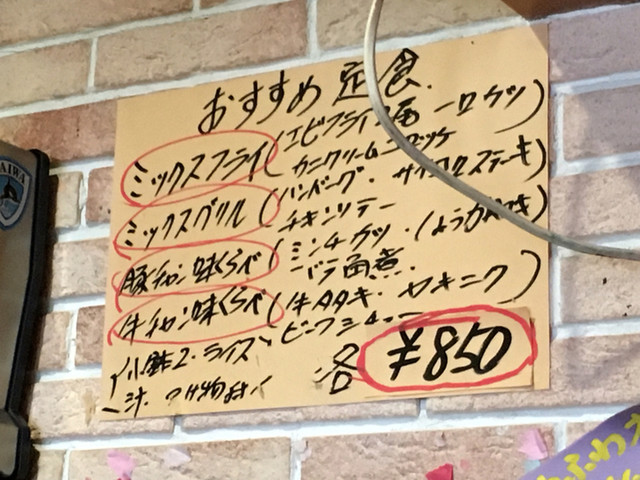 おすすめ 定食
ミックスフライ(エビフライ2尾 一口カツ
カニクリームコロッケ)
ミックスグリル(ハンバーグ・サイコロステーキ
チキンソテー)
豚チャン味くらべ(ミンチカツ・しょうが
バラ角煮)
牛チャン味くらべ(牛タタキ・ヤキニク
ビーフシチュー)
小鉢2・ライス 各 ¥850
汁 つけ物
AIWA
ふわ